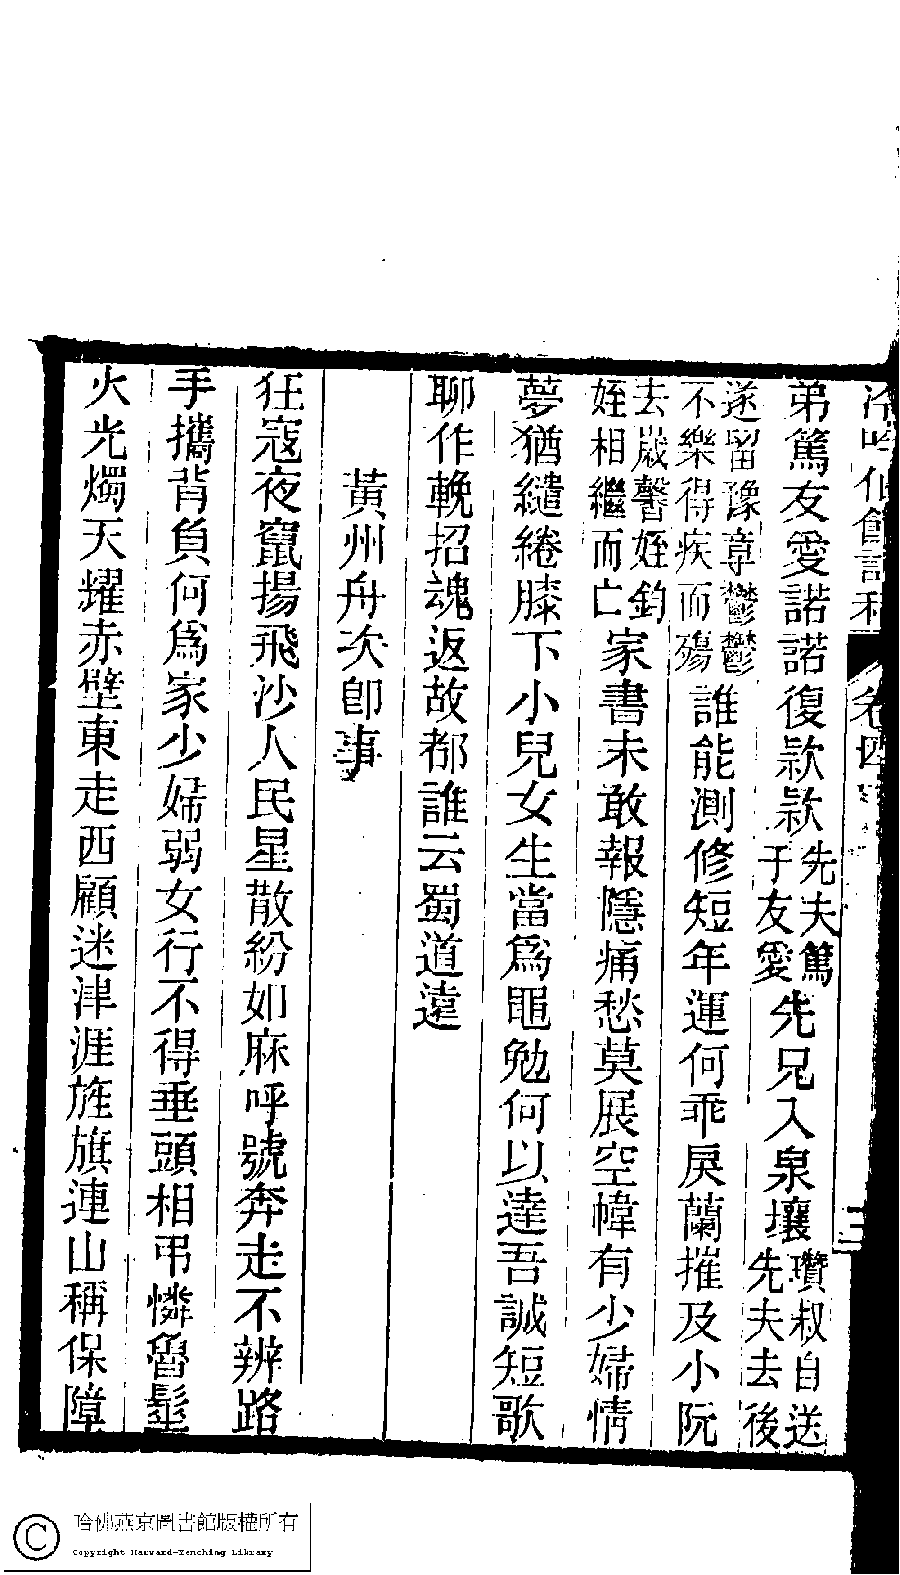 卷四
三
弟篤友愛諾諾復款款先夫篤于友愛先兄入泉壤瓚叔自送先夫去後
遂留豫章鬱鬱不樂得疾而殤誰能測修短年運何乖戾蘭摧及小阮
去歲馨姪鈞姪相繼而亡家書未敢報隱痛愁莫展空幃有少婦情
夢猶繾綣膝下小兒女生當爲黽勉何以達吾誠短歌
聊作輓招魂返故都誰云蜀道遠
黃州舟次卽事
狂寇夜竄揚飛沙人民星散紛如麻呼號奔走不辨路
手攜背負何爲家少婦弱女行不得垂頭相弔憐魯髽
火光燭天耀赤壁東走西顧迷津涯旌旗連山稱保障
哈佛燕京圖書館版權所有
Copyright Harvard-Yenching Library